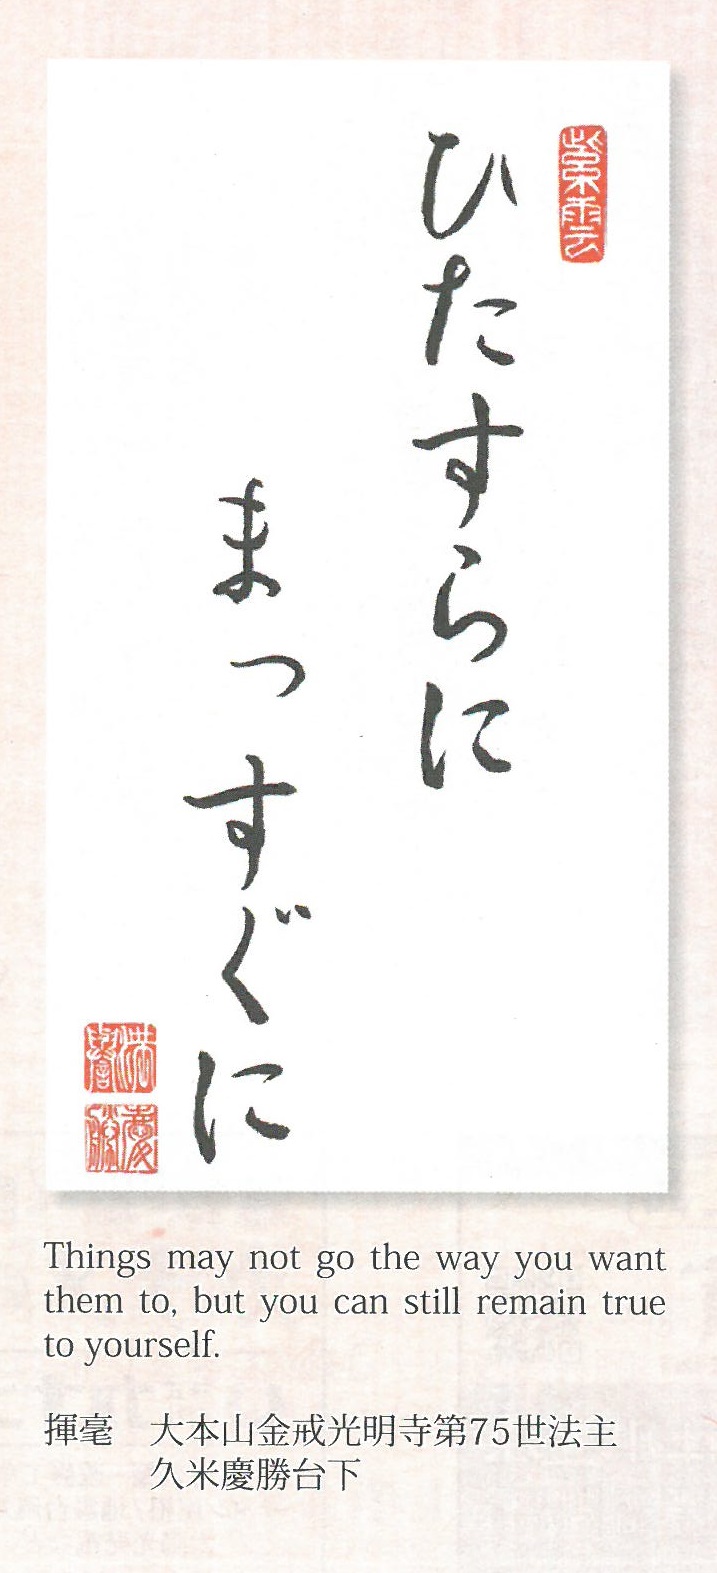 紫雲
ひたすらに
まっすぐに
満誉
慶勝
Things may not go the way you want
them to, but you can still remain true
to yourself.
揮毫　大本山金戒光明寺第75世法主
久米慶勝台下